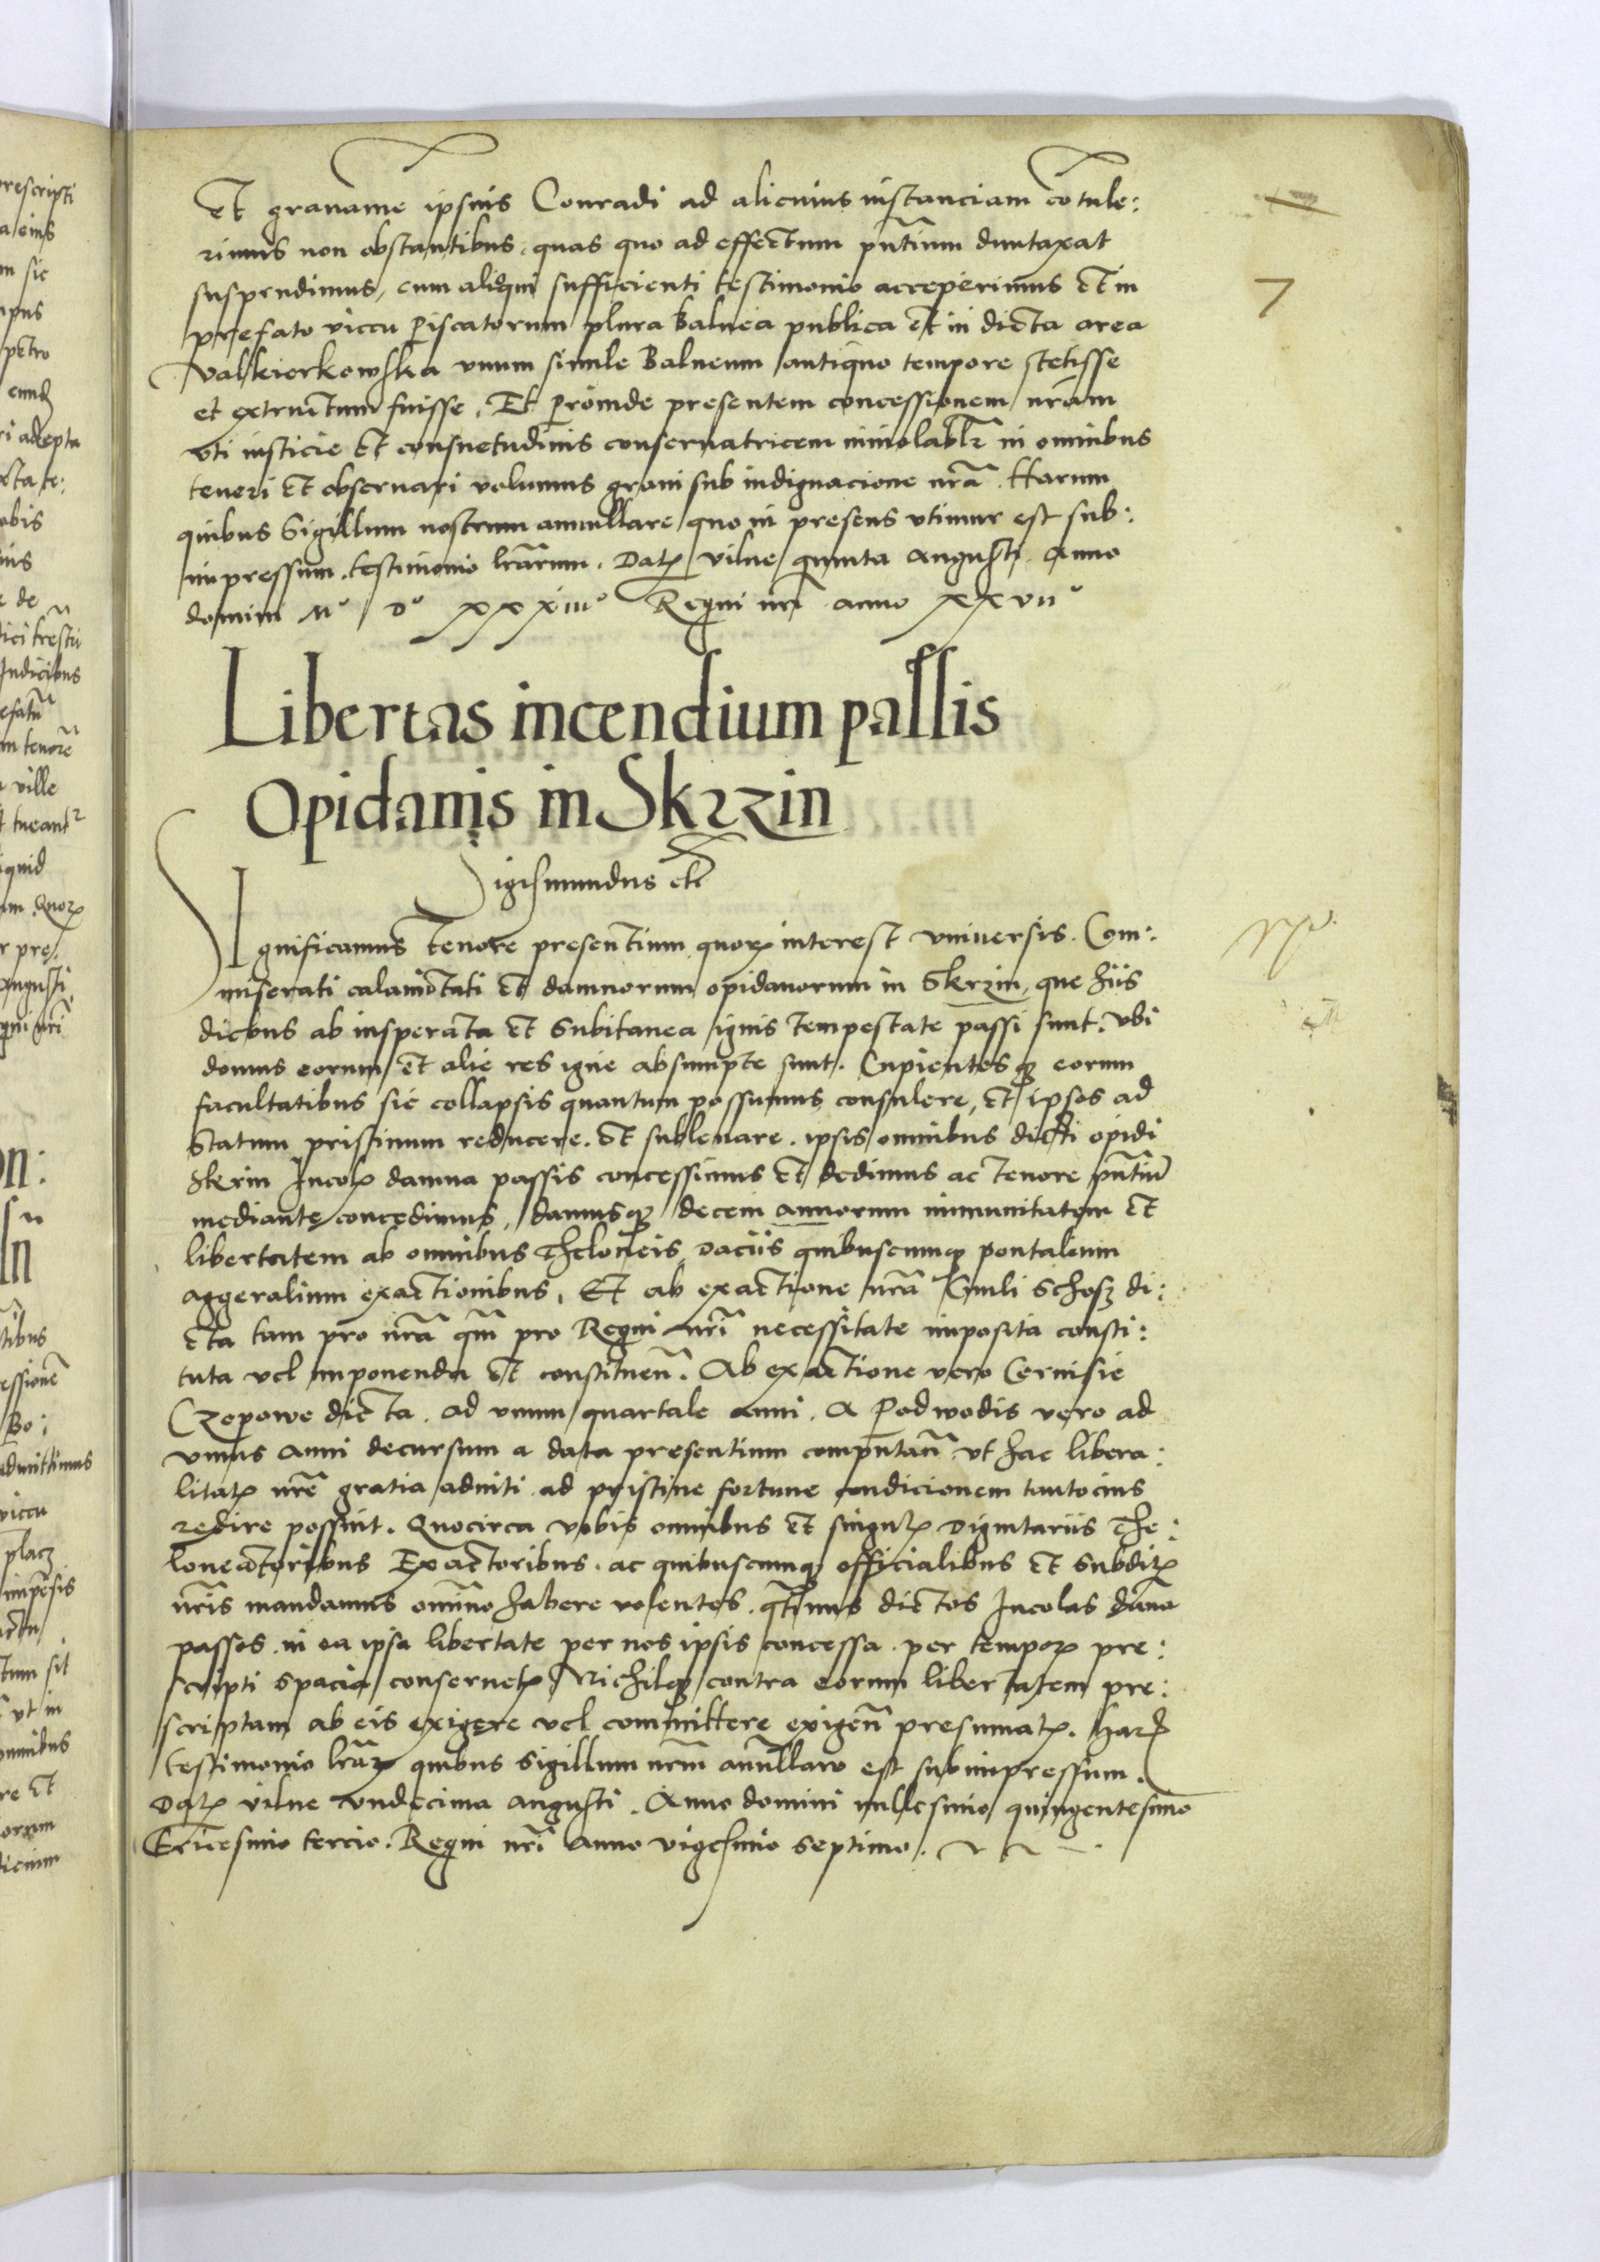 et granamē ipsius Conradi ad alicuius instanciam cōtule:
rimus non obstantibus, quas quo ad effectum pn̄tium duntaxat
suspendimus, cum aliqui sufficienti testimonio acceperimus et in
prefato viccu piscatorum plura balnea publica et in dicta area
Valkierkowska vnum simile Balneum antiquo tempore stetisse
et extructum fuisse. Et proinde presentem concessionem nr̄am
vti iusticie et consuetudinis conseruatricem inuiolablr in omnibus
teneri et obseruari volumus graui sub indignacione nr̄a. Harum
quibus Sigillum nostrum annullare quo in presens vtimur est sub:
impressum testimonio lr̄arum. Datꝫ vilne quinta Augusti Anno
domini Mº Dº xxxiiiº Regni nr̄i anno xxviiº
Libertas incendium passis
Opidanis in Skrzin
Sigismundus etc
Significamus tenore presentium quorꝫ interest vniuersis. Com:
miserati calamitati et damnorum opidanorum in Skrzin, que hiis
diebus ab insperata et subitanea ignis tempestate passi sunt. vbi
domus eorum et alie res igne absumpte sunt. Cupientesqꝫ eorum
facultatibus sic collapsis quantum possumus consulere, et ipsos ad
statum pristinum reducere et subleuare. ipsis omnibus dicti opidi
Skrin Incolꝫ damna passis concessimus et dedimus ac tenore pn̄tium
mediante concedimus, damusqꝫ decem annorum immunitatem et
libertatem ab omnibus Theloneis, daciis quibuscumqꝫ pontalium
aggeralium exactionibus. Et ab exactione nr̄a Ciuili Schosz di:
cta tam pro nr̄a qm̄ pro Regni nr̄i necessitate imposita consti:
tuta vel imponenda et constituen̄. Ab exactione vero Ceruisie
Czopowe dicta ad vnum quartale anni. A Podwodis vero ad
vnius anni decursum a data presentium computan̄ vt hac libera:
litatꝫ nr̄e gratia adiuti ad pristine fortune condicionem tantocius
redire possint. Quocirca vobis omnibus et singulꝫ Dignitariis The:
loneatoribus Exactoribus ac quibuscumqꝫ officialibus et subditꝫ
nr̄is mandamus omnino habere volentes qtinus dictos Incolas damna
passos in ea ipsa libertate per nos ipsis concessa per temporꝫ pre:
scripti spacia conseruetꝫ Nichilqꝫ contra eorum libertatem pre:
scriptam ab eis exigere vel committere exigen̄ presumatꝫ. harꝫ
testimonio lr̄arꝫ quibus sigillum nr̄m annullare est subimpressum.
Datꝫ vilne vndecima augusti. Anno domini millesimo quingentesimo
Tricesimo tercio. Regni nr̄i anno vigesimo septimo.
7